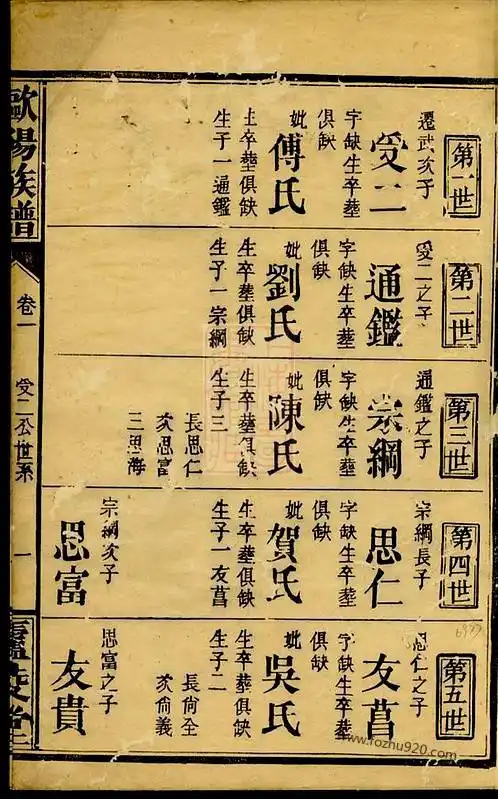 第一世
遷武次子
受二
字缺生卒葬
俱缺
妣
傅氏
生卒葬俱缺
生子一通鑑
第二世
受二之子
通鑑
字缺生卒葬
俱缺
妣
劉氏
生卒葬俱缺
生子一宗綱
第三世
通鑑之子
宗綱
字缺生卒葬
俱缺
妣
陳氏
生卒葬俱缺
生子三
長思仁
次思富
三思海
第四世
宗綱長子
思仁
字缺生卒葬
俱缺
妣
賀氏
生卒葬俱缺
生子一友菖
宗綱次子
思富
第五世
思仁之子
友菖
字缺生卒葬
俱缺
妣
吳氏
生卒葬俱缺
生子二
長尙全
次尙義
思富之子
友貴
歐陽族譜
卷一
受二公世系
一
www.fozhu920.com